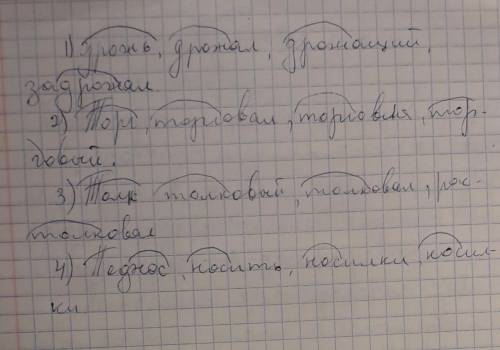 1) Дрожь, дрожал, дрожащий,
задрожал
2) Торг, торговал, торговля, тор-
говый.
3) Толк толковый, толковал, рас-
толковал
4) Поднос, носить, носилки, носил-
ки